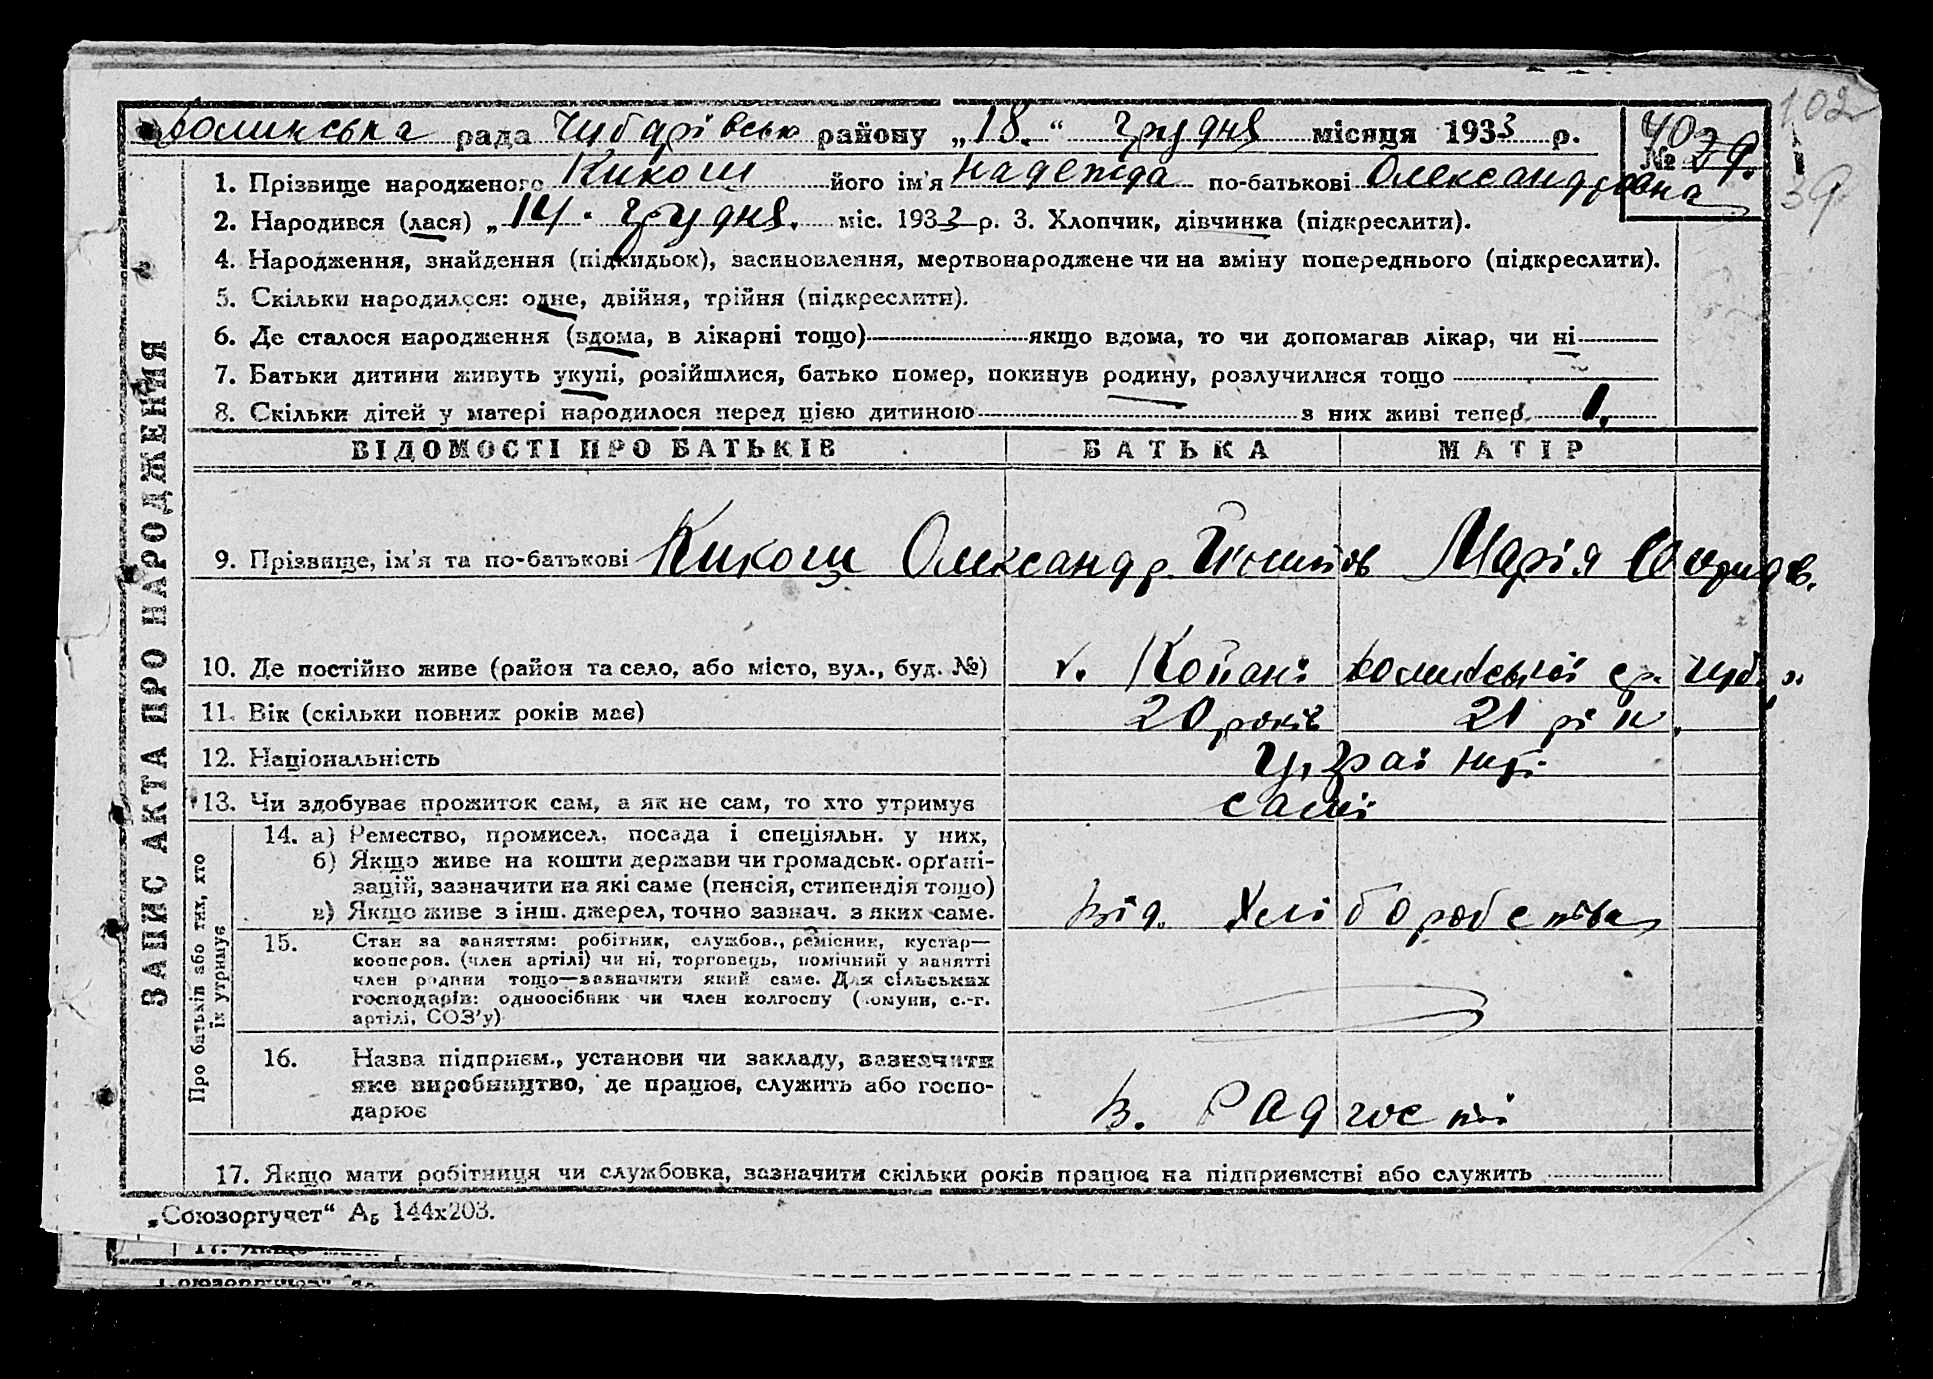 Волинська рада Чубарівсько району „18.“ грудня місяця 1933 р.
102
№ 39.
40
39
1. Прізвище народженого Кикош його ім’я Надежда по-батькові Олександровна
2. Народився (лася) „14. грудня. міс. 1933 р. 3. Хлопчик, дівчинка (підкреслити).
4. Народження, знайдення (підкидьок), засиновлення, мертвонароджене чи на зміну попереднього (підкреслити).
5. Скільки народилося: одне, двійня, трійня (підкреслити).
6. Де сталося народження (вдома, в лікарні тощо) якщо вдома, то чи допомагав лікар, чи ні
7. Батьки дитини живуть укупі, розійшлися, батько помер, покинув родину, розлучилися тощо
8. Скільки дітей у матері народилося перед цією дитиною з них живі тепер 1.
ЗАПИС АКТА ПРО НАРОДЖЕННЯ
ВІДОМОСТІ ПРО БАТЬКІВ БАТЬКА МАТІР
9. Прізвище, ім’я та по-батькові Кикош Олександр Марія
10. Де постійно живе (район та село, або місто, вул., буд. №) Копані Волинської ср. Чуб.
11. Вік (скільки повних років має) 20 років 21 рік
12. Національність Україньці
13. Чи здобуває прожиток сам, а як не сам, то хто утримує самі
Про батьків або тих, хто їх утримує
14. а) Ремество, промисел, посада і спеціяльн. у них,
б) Якщо живе на кошти держави чи громадськ. орґані-
зацій, зазначити на які саме (пенсія, стипендія тощо)
в) Якщо живе з інш. джерел, точно зазнач. з яких саме.
від. Хліборобства
15. Стан за заняттям: робітник, службов., ремісник, кустар—
кооперов. (член артілі) чи ні, торговець, помічний у занятті
член родини тощо—зазначити який саме. Для сільських
господарів: одноосібник чи член колгоспу (комуни, с.-г.
артілі, СОЗ’у)
16. Назва підприєм., установи чи закладу, зазначити
яке виробництво, де працює, служить або госпо-
дарює
в. Радгоспі
17. Якщо мати робітниця чи службовка, зазначити скільки років працює на підприємстві або служить
„Союзоргучет“ А₅ 144х203.